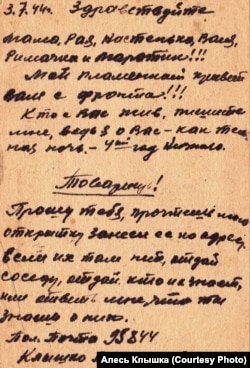 3.7.44г. Здравствуйте
мама, Рая, Настенька, Валя,
Римочка и Маратик!!!
Мой пламенный привет
вам с фронта!!!
Кто с Вас жив, пишите
мне, ведь о Вас - как тем
ная ночь - 4ый год ничего.
Товарищ!
Прошу тебя, прочтешь мою
открытку занеси ее по адресу,
если их там нет, отдай
соседу, отдай кто их знает,
или ответь мне, что ты
знаешь о них.
Пол. Почта 95844
Клышко
Алесь Клышка (Courtesy Photo)